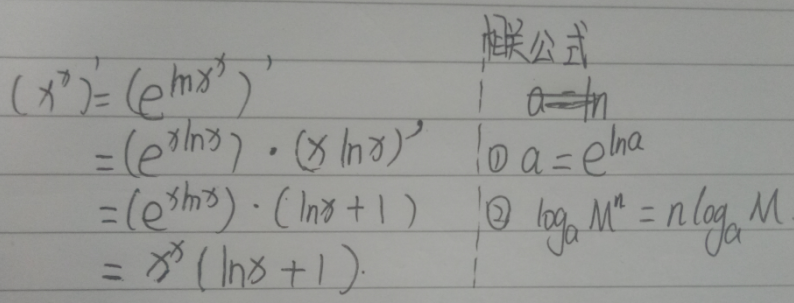 (x^x)' = (e^{lnx^x})'
= (e^{xlnx}) · (x lnx)'
= (e^{xlnx}) · (lnx + 1)
= x^x (lnx + 1).
相关公式
① a = e^{lna}
② log_a M^n = n log_a M.